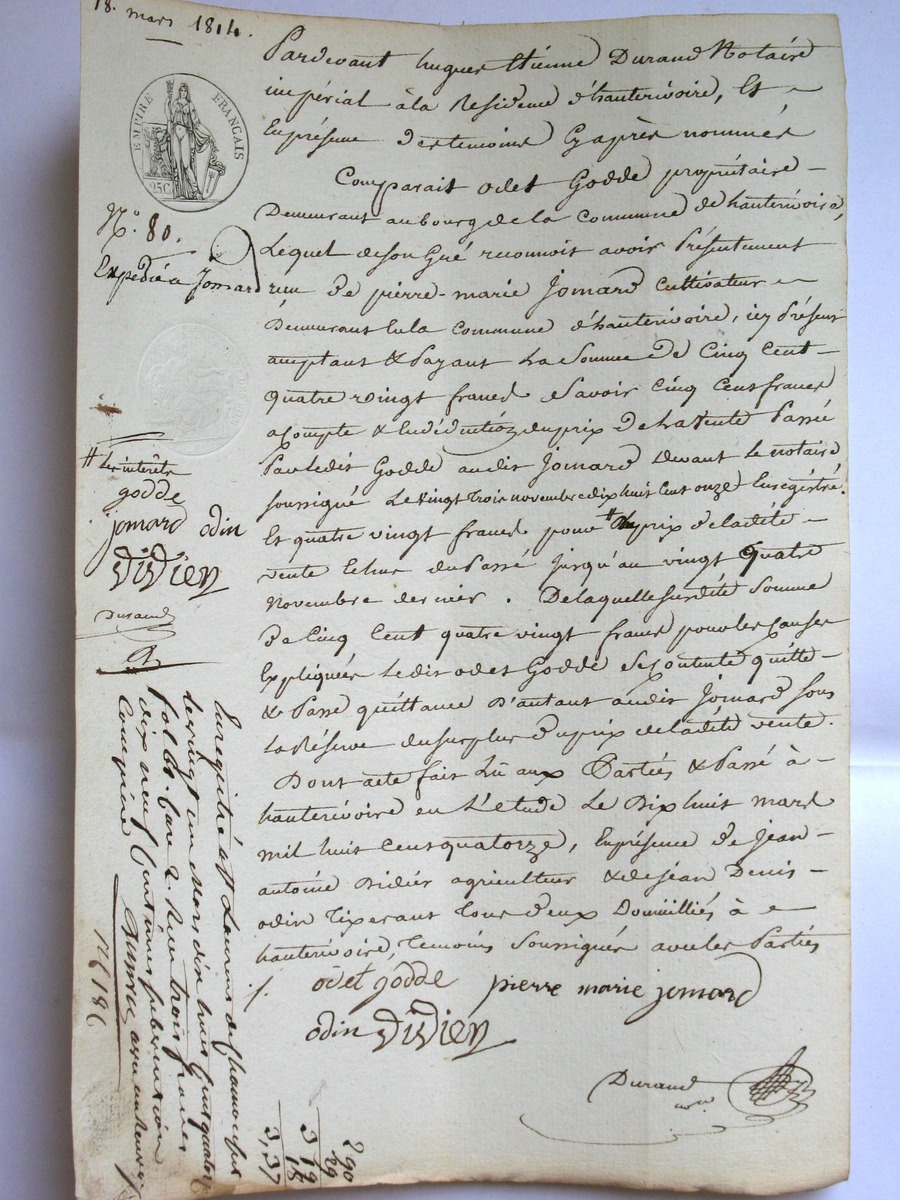 18. mars 1814.
EMPIRE FRANÇAIS
25C.
N.° 80.
Expedié a Jomard
Pardevant hugues Etienne Durand Notaire
impérial à la Residence d'hauterivoire, Et
En présence des temoins Cy après nommés
Comparait odet Godde propriétaire
Demeurant au bourg de la Commune de hauterivoire,
Lequel de son Gré reconnoit avoir Présentement
reçu de pierre-marie Jomard Cultivateur
Demeurant En la Commune d'hauterivoire, icy Présent
acceptant & Payant La Somme de Cinq Cent
quatre vingt francs Savoir Cinq Cent francs
a Compte & En déduction du prix de La Vente Passé
Par Ledit Godde audit Jomard devant Le notaire
soussigné Le Vingt Trois novembre dix huit Cent onze Enregistré.
Et quatre vingt francs pour # du prix de la dite
vente Echus du Passé Jusqu'au vingt quatre
Novembre dernier. De laquelle susdite Somme
de Cinq Cent quatre vingt francs pour les Causes
Expliquées Ledit odet Godde Se Contente quitte
& Passe quittance D'autant audit Jomard Sous
La Réserve du Surplus du prix de la dite vente.
Dont acte fait Lû aux Parties & Passé à
hauterivoire en L'etude Le Dix huit mars
mil huit Cent quatorze, En présence de Jean
antoine Didier agriculteur & de Jean Denis
odin Tixerant Tous deux Domicilliés à
hauterivoire, Temoins Soussignés avec les Parties
# Les intérêts
godde
jomard odin
DiDier
Durand
odet godde pierre marie jomard
odin DiDier
Durand
Enregistré a St Laurent de Chamousset
le vingt un Mars dix huit Cent quatorze
fol. 80. Case 2. Reçu trois francs
dix neuf Centimes subvention
Comprise
290
29
319
18
3,37